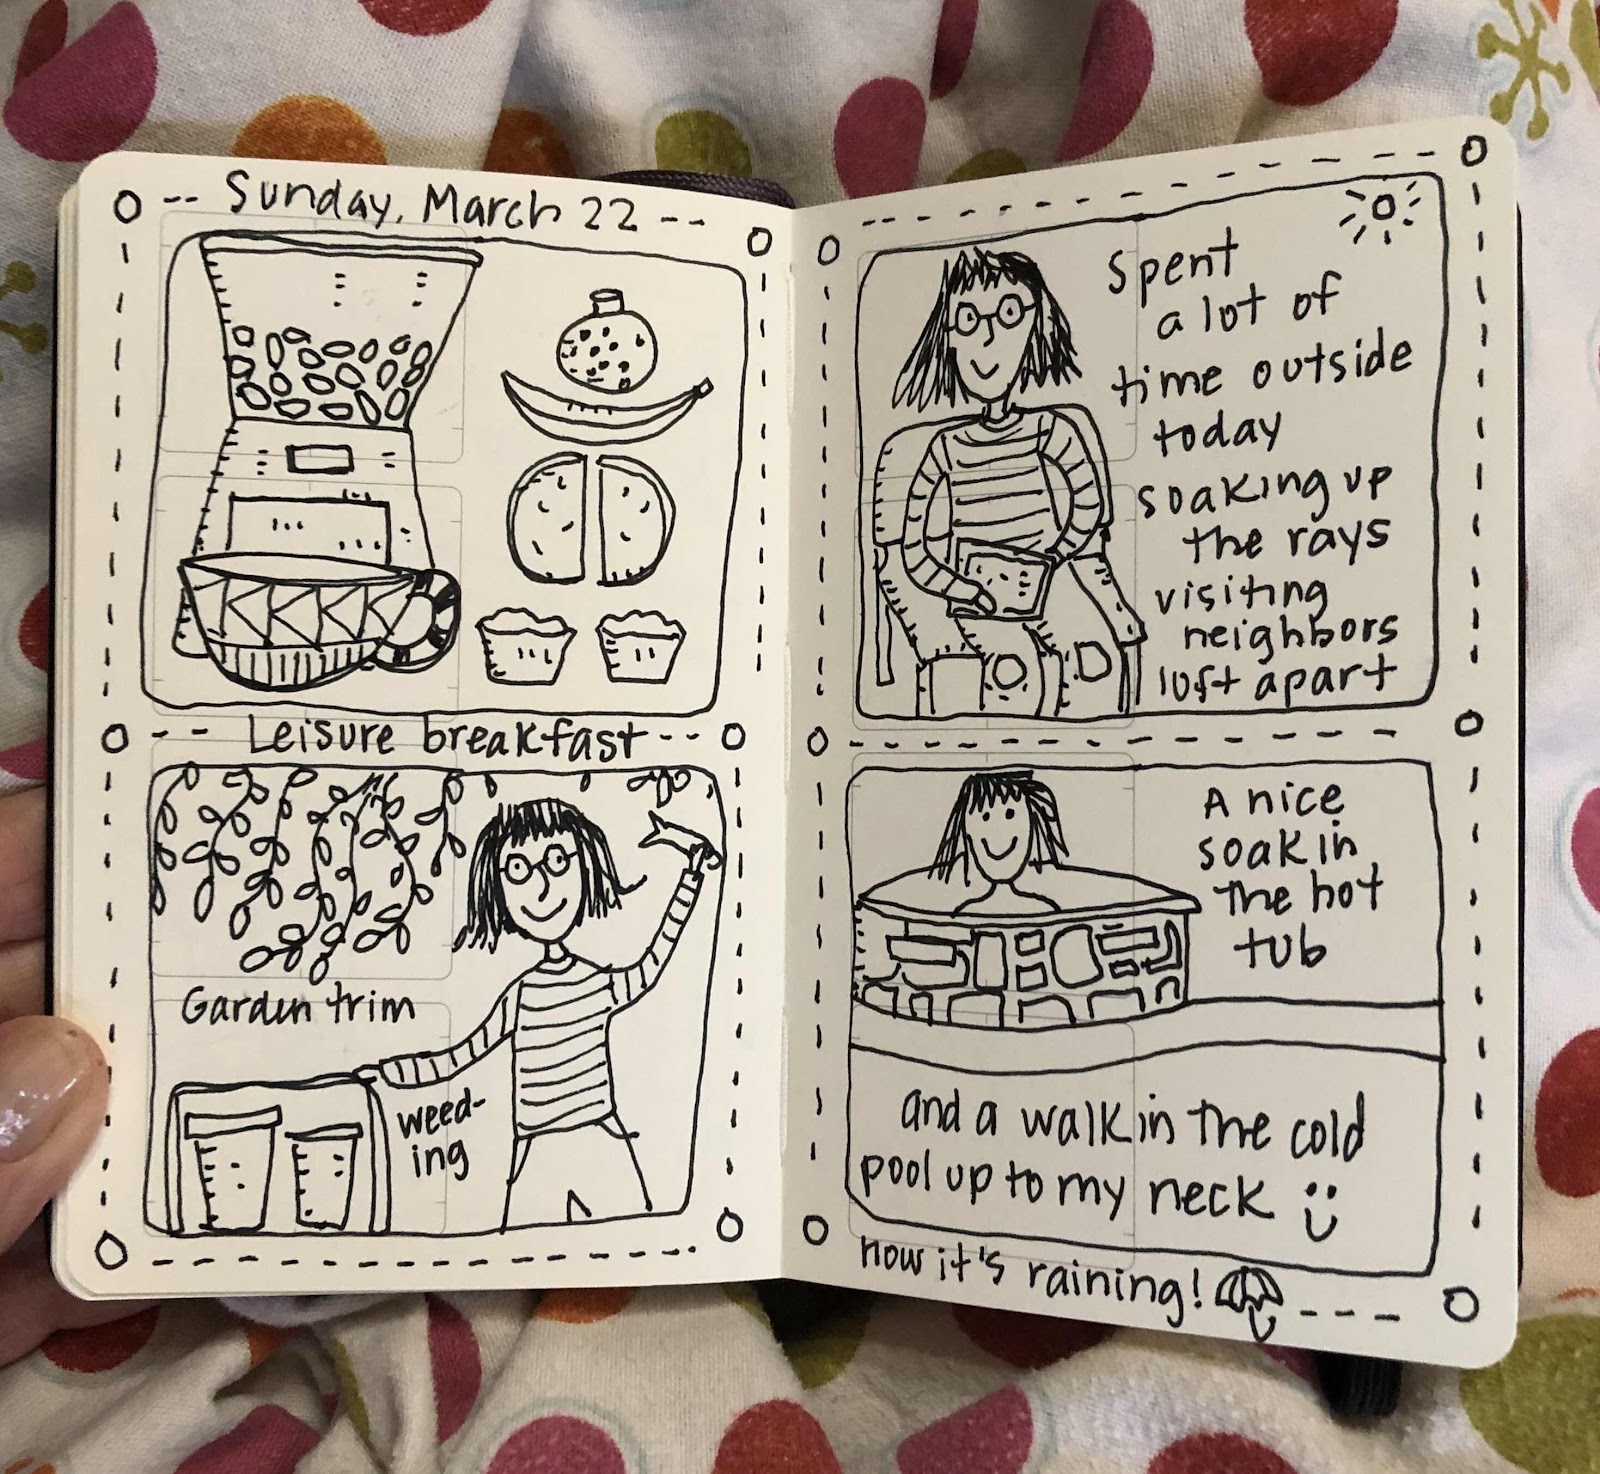 Sunday, March 22
Leisure breakfast
Garden trim
weed-
ing
Spent
a lot of
time outside
today
soaking up
the rays
visiting
neighbors
10ft apart
A nice
soak in
the hot
tub
and a walk in the cold
pool up to my neck
now it's raining!